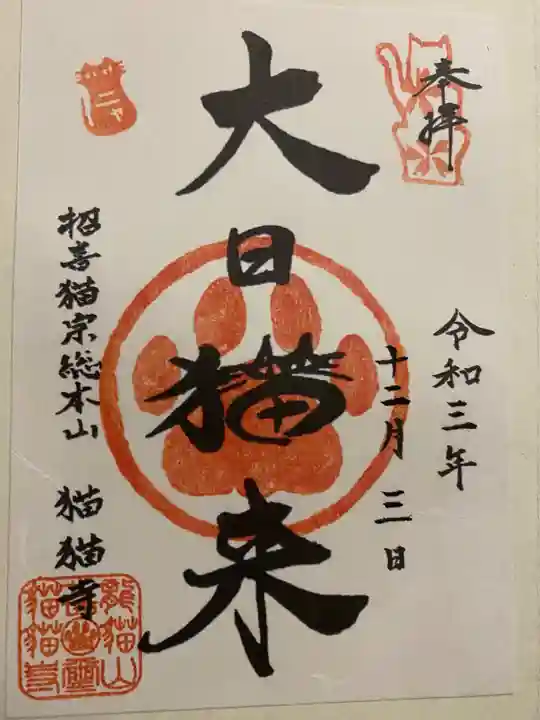 奉拝
令和三年
十二月三日
大日猫来
招喜猫宗総本山 猫猫寺
ニャ
龍猫山
猫猫寺